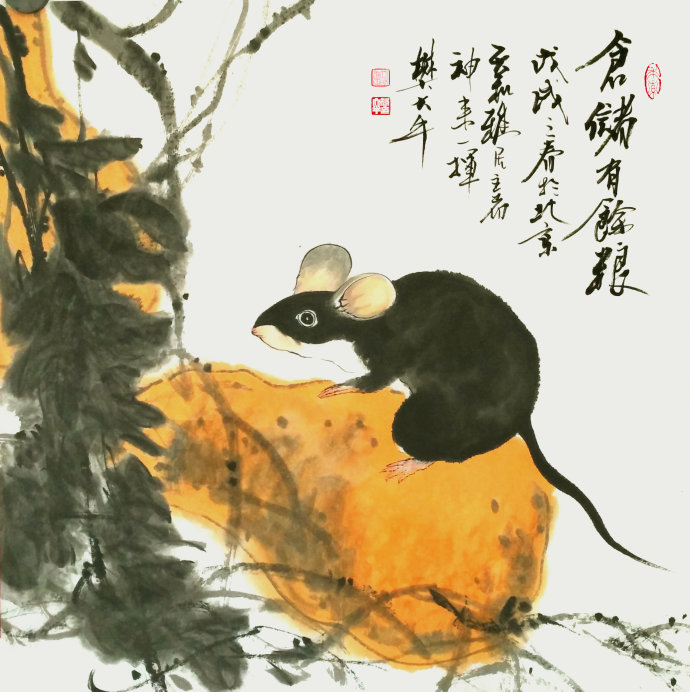 倉儲有餘粮
戊戌之春於北京
雅居主者
神来一揮
樊大年